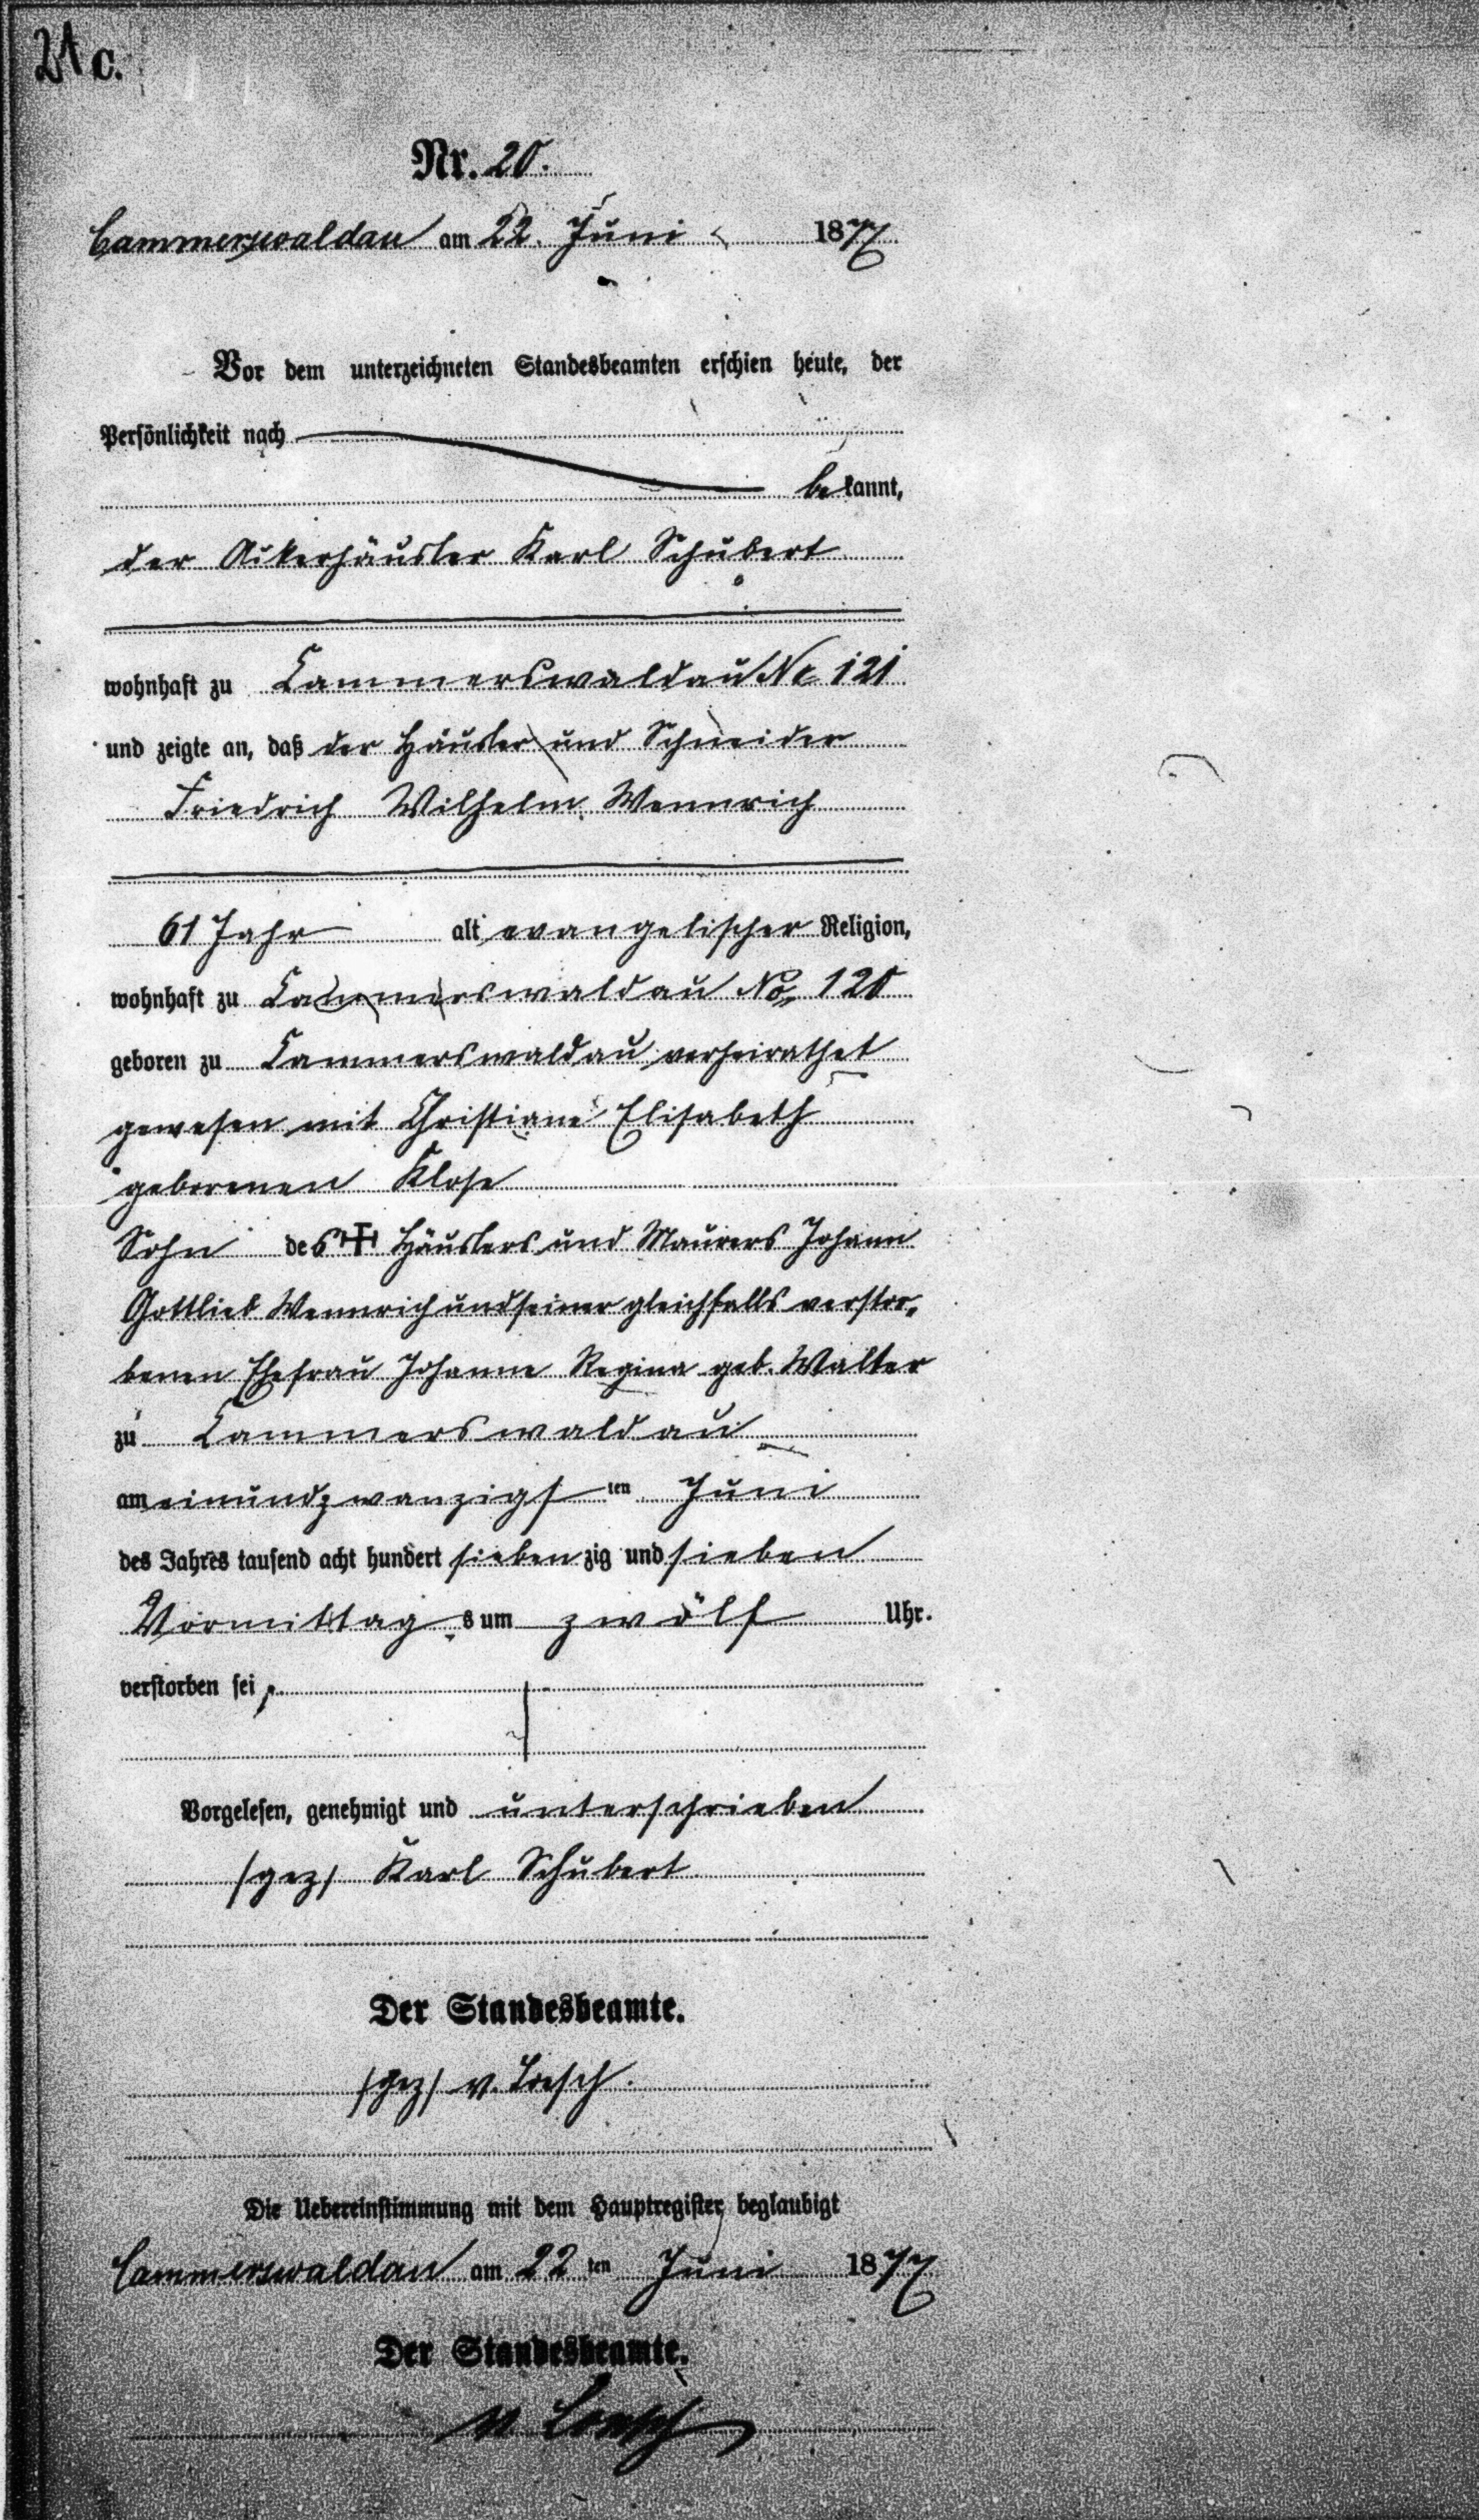 21 c.
Nr. 20.
Cammerswaldau am 22. Juni 1877.
Vor dem unterzeichneten Standesbeamten erschien heute, der
Persönlichkeit nach
bekannt,
der Ackerhäusler Karl Schubert
wohnhaft zu Cammerswaldau No 121
und zeigte an, daß der Häusler und Schneider
Friedrich Wilhelm Wennrich
61 Jahr alt evangelischer Religion,
wohnhaft zu Cammerswaldau No. 120
geboren zu Cammerswaldau verheirathet
gewesen mit Christiane Elisabeth
geborenen Klose
Sohn des † Häuslers und Maurers Johann
Gottlieb Wennrich und seiner gleichfalls verstor-
benen Ehefrau Johanne Regina geb. Walter
zu Cammerswaldau
am einundzwanzigsten Juni
des Jahres tausend acht hundert siebenzig und sieben
Vormittags um zwölf Uhr.
verstorben sei,
Vorgelesen, genehmigt und unterschrieben
/gez/ Karl Schubert
Der Standesbeamte.
/gez/ v. Loesch.
Die Uebereinstimmung mit dem Hauptregister beglaubigt
Cammerswaldau am 22ten Juni 1877
Der Standesbeamte.
v. Loesch